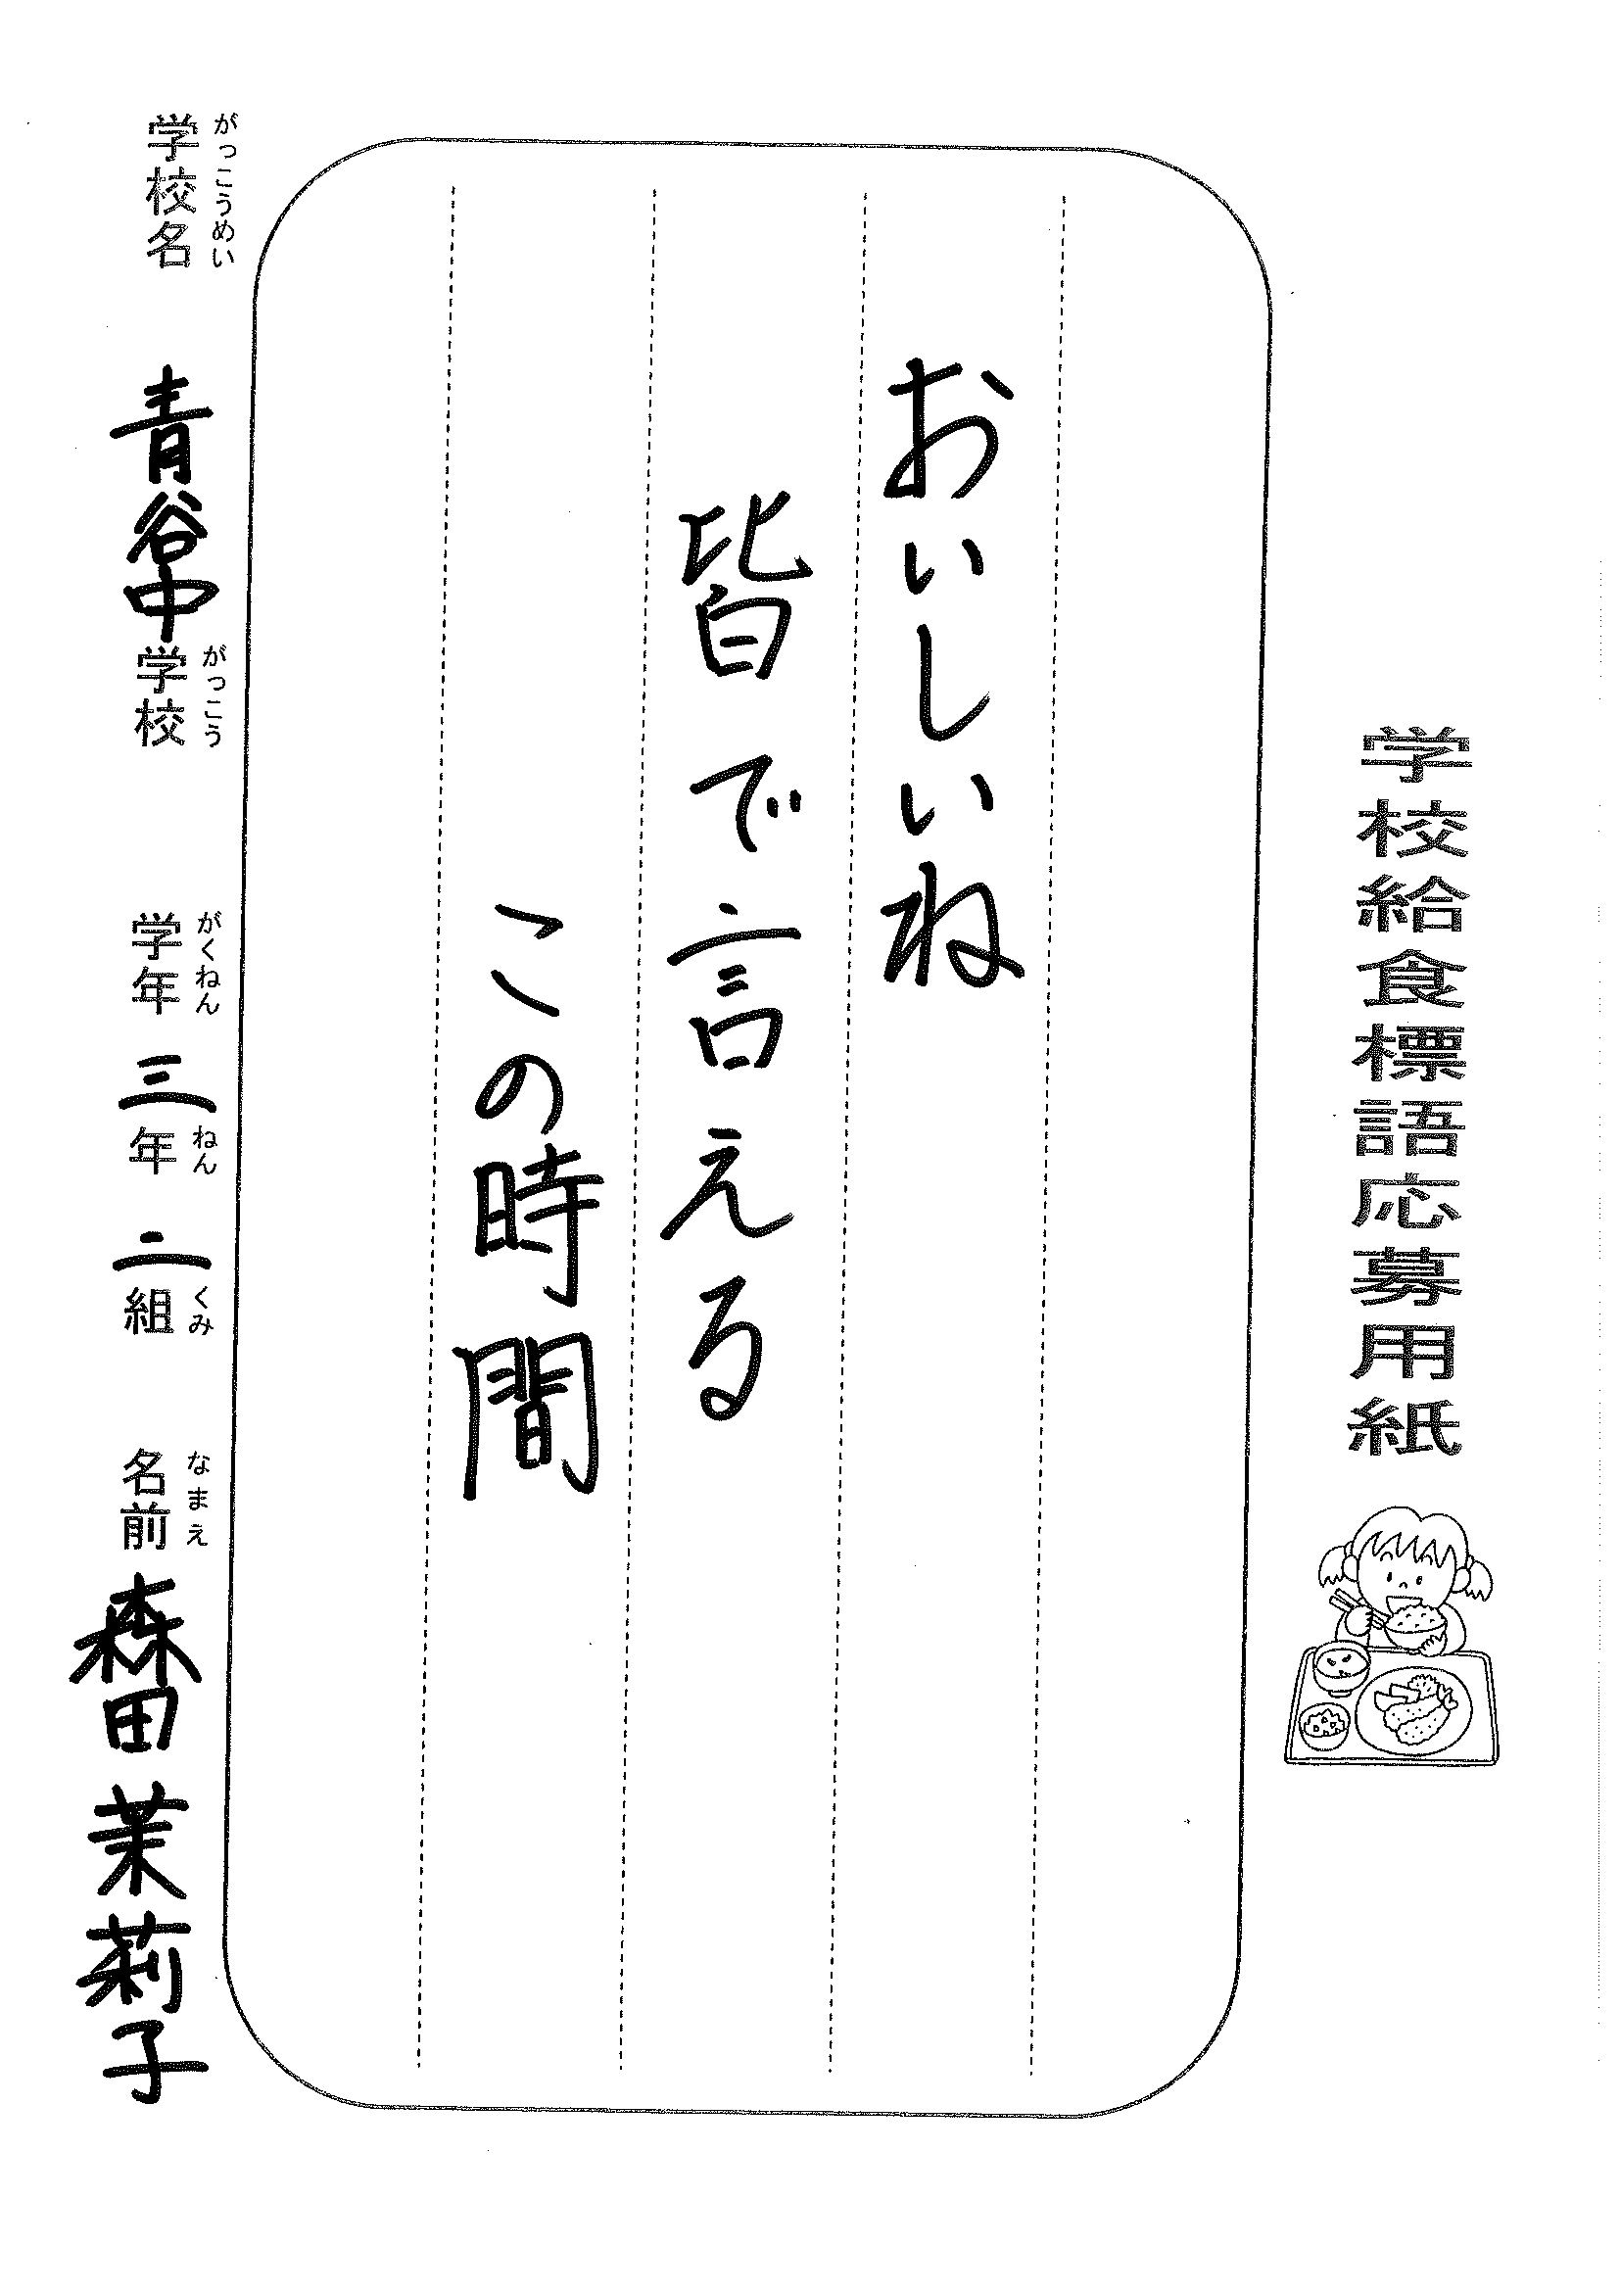 学校給食標語応募用紙
おいしいね
皆で言える
この時間
がっこうめい がっこう がくねん ねん くみ なまえ
学校名 青谷中学校 学年 三年 二組 名前 森田茉莉子